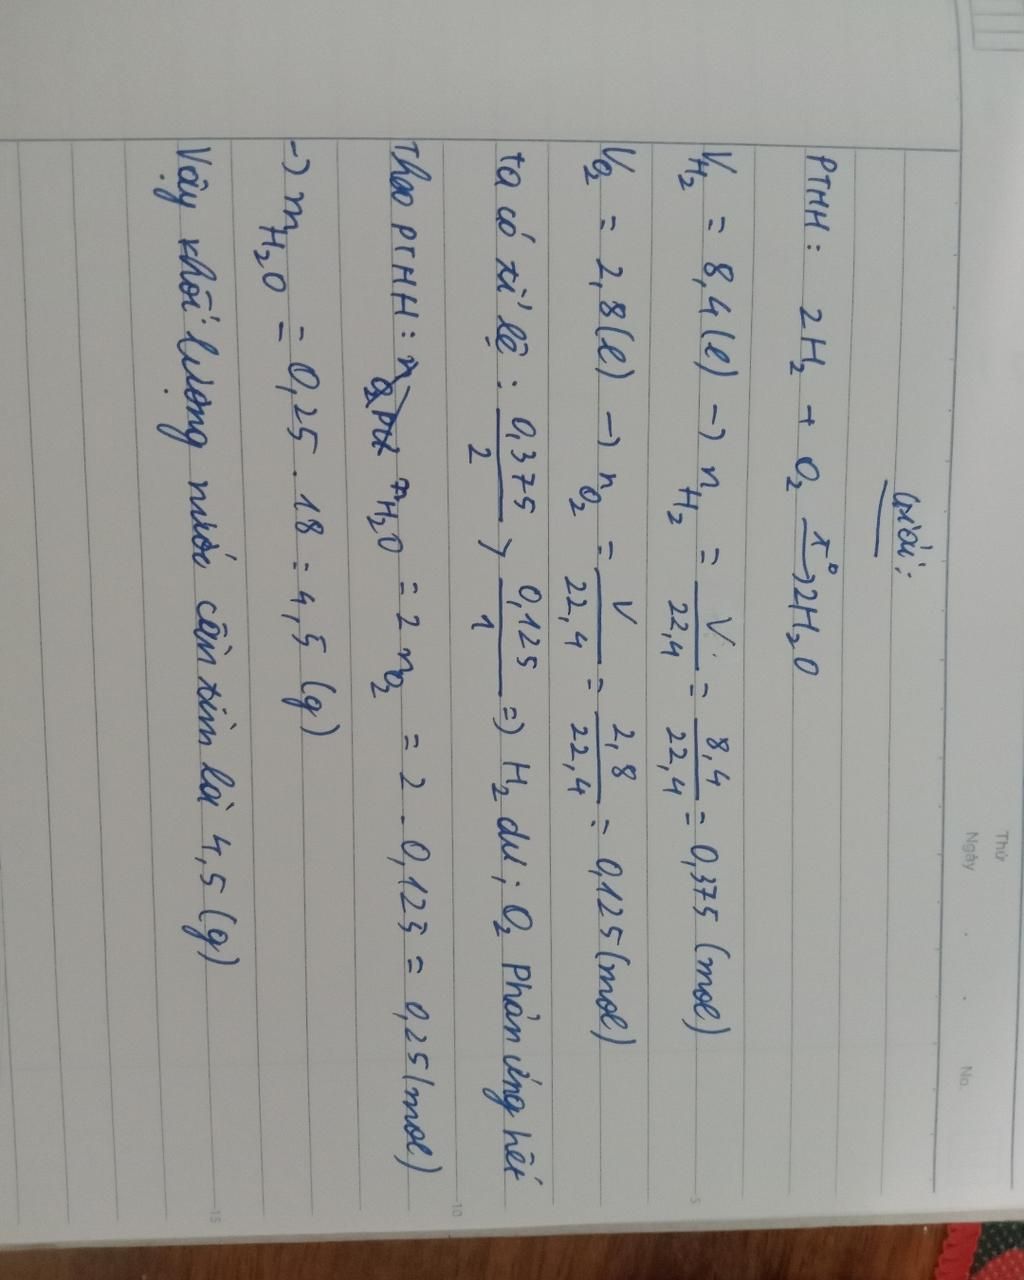 Thứ
Ngày . . No.
Giải:
PTHH: 2H₂ + O₂ —t°→ 2H₂O
V_H₂ = 8,4(l) → n_H₂ = V/22,4 = 8,4/22,4 = 0,375 (mol)
V_O₂ = 2,8(l) → n_O₂ = V/22,4 = 2,8/22,4 = 0,125 (mol)
ta có tỉ lệ: 0,375/2 > 0,125/1 => H₂ dư; O₂ Phản ứng hết
Theo PTHH: n_H₂O = 2 n_O₂ = 2 . 0,125 = 0,25 (mol)
→ m_H₂O = 0,25 . 18 = 4,5 (g)
Vậy khối lượng nước cần tìm là 4,5 (g)
5
10
15